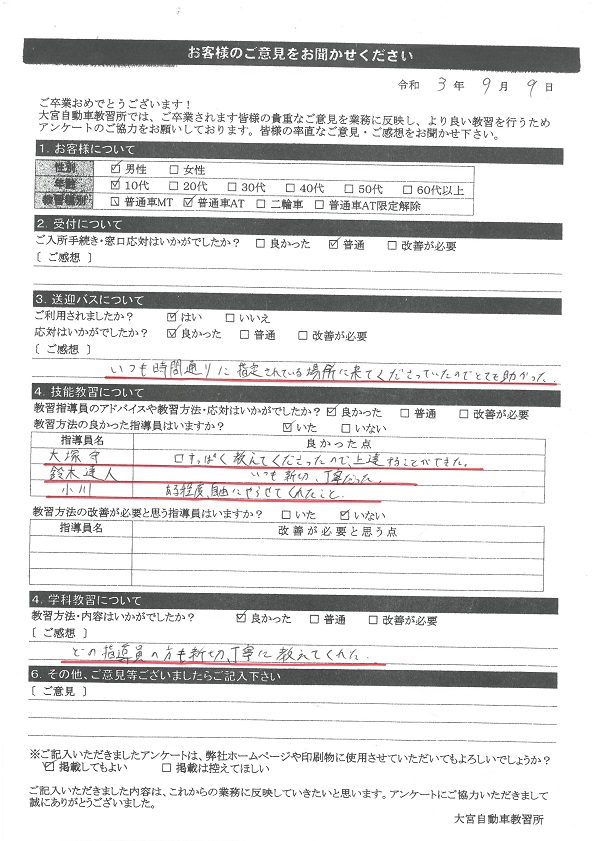 お客様のご意見をお聞かせください
令和 3 年 9 月 9 日
ご卒業おめでとうございます！
大宮自動車教習所では、ご卒業されます皆様の貴重なご意見を業務に反映し、より良い教習を行うため
アンケートのご協力をお願いしております。皆様の率直なご意見・ご感想をお聞かせ下さい。
1. お客様について
性別 ☑男性 □女性
年齢 ☑10代 □20代 □30代 □40代 □50代 □60代以上
教習種別 ☑普通車MT ☑普通車AT □二輪車 □普通車AT限定解除
2. 受付について
ご入所手続き・窓口応対はいかがでしたか？ □良かった ☑普通 □改善が必要
〔 ご感想 〕
3. 送迎バスについて
ご利用されましたか？ ☑はい □いいえ
応対はいかがでしたか？ ☑良かった □普通 □改善が必要
〔 ご感想 〕
いつも時間通りに指定されている場所に来てくださっていたのでとても助かった.
4. 技能教習について
教習指導員のアドバイスや教習方法・応対はいかがでしたか？ ☑良かった □普通 □改善が必要
教習方法の良かった指導員はいますか？ ☑いた □いない
指導員名 良かった点
大塚守 口すっぱく教えてくださったので、上達することができた。
鈴木達人 いつも親切、丁寧だった。
小川 ある程度、自由にやらせてくれたこと.
教習方法の改善が必要と思う指導員はいますか？ □いた ☑いない
指導員名 改善が必要と思う点
4. 学科教習について
教習方法・内容はいかがでしたか？ ☑良かった □普通 □改善が必要
〔 ご感想 〕
どの指導員の方も親切、丁寧に教えてくれた.
6. その他、ご意見等ございましたらご記入下さい
〔 ご意見 〕
※ご記入いただきましたアンケートは、弊社ホームページや印刷物に使用させていただいてもよろしいでしょうか？
☑掲載してもよい □掲載は控えてほしい
ご記入いただきました内容は、これからの業務に反映していきたいと思います。アンケートにご協力いただきまして
誠にありがとうございました。
大宮自動車教習所